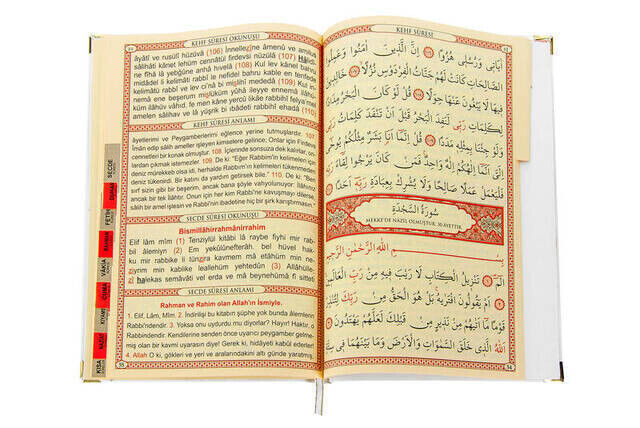 SECDE
DUHAN
FETİH
RAHMAN
VAKIA
CUMA
KIYAME
NEBE
KISA
KEHF SÛRESİ OKUNUŞU
âyâtî ve rusulî hüzüvâ (106) İnnellezîne âmenû ve amilus
sâlihâti kânet lehüm cennâtül firdevsi nüzülâ (107) Hâlidî-
ne fîhâ lâ yebğûne anhâ hıvelâ (108) Kul lev kânel bahru
midâdel li kelimâti rabbî le nefidel bahru kable en tenfede
kelimâtü rabbî ve lev ci'nâ bi mislihî mededâ (109) Kul in-
nemâ ene beşerum mislüküm yûhâ ileyye ennemâ ilâhü-
küm ilâhüv vâhid, fe men kâne yercû likâe rabbihî felya'mel
amelen sâlihav ve lâ yüşrik bi ıbâdeti rabbihî ehadâ (110)
KEHF SÛRESİ ANLAMI
âyetlerimi ve Peygamberlerimi eğlence yerine tutmuşlardır. 107.
İman edip sâlih ameller işleyen kimselere gelince; Onlar için Firdevs
cennetleri bir konak olmuştur. 108. İçlerinde sonsuza dek kalırlar, on-
lardan çıkmak istemezler. 109. De ki: "Eğer Rabbimin kelimeleri için
deniz mürekkeb olsa idi, herhalde Rabbimin kelimeleri tükenmeden
deniz tükenirdi. Bir katını da yardım getirsek bile." 110. De ki: "Ben
sırf sizin gibi bir beşerim, ancak bana şöyle vahyolunuyor: İlâhınız
ancak bir tek ilâhtır. Onun için her kim Rabbine kavuşmayı dilerse
SECDE SÛRESİ OKUNUŞU
Bismillâhirrahmânirrahîm
Elif lâm mîm (1) Tenzîlül kitâbi lâ raybe fîyhi mir rab-
bil âlemiyn (2) Em yekûlûnefterâh. bel hüvel hak-
ku mir rabbike li tünzira kavmem mâ etâhüm min ne-
ziyrim min kablike leallehüm yehtedûn (3) Allâhülle-
zî halekas semâvâti vel erda ve mâ beynehümâ fî sitteti
SECDE SÛRESİ ANLAMI
Rahman ve Rahim olan Allah'ın İsmiyle.
1. Elif, Lâm, Mîm. 2. İndirilişi bu kitabın şüphe yok bunda âlemlerin
Rabbi'ndendir. 3. Yoksa onu uydurdu mu diyorlar? Hayır! Haktır, o
Rabbindendir. Kendilerine senden önce uyarıcı peygamber gelme-
miş olan bir kavmi uyarasın diye! Gerek ki, hidâyeti kabul ederler!
4. Allah O ki, gökleri ve yeri ve aralarındakini altı günde yaratmış,
KEHF SÛRESİ
اٰيَاتٖى وَرُسُلٖى هُزُوًا ﴿١٠٦﴾ اِنَّ الَّذٖينَ اٰمَنُوا وَعَمِلُوا
الصَّالِحَاتِ كَانَتْ لَهُمْ جَنَّاتُ الْفِرْدَوْسِ نُزُلًا ﴿١٠٧﴾ خَالِدٖينَ
فٖيهَا لَا يَبْغُونَ عَنْهَا حِوَلًا ﴿١٠٨﴾ قُلْ لَوْ كَانَ الْبَحْرُ مِدَادًا
لِكَلِمَاتِ رَبّٖى لَنَفِدَ الْبَحْرُ قَبْلَ اَنْ تَنْفَدَ كَلِمَاتُ رَبّٖى
وَلَوْ جِئْنَا بِمِثْلِهٖ مَدَدًا ﴿١٠٩﴾ قُلْ اِنَّمَٓا اَنَا بَشَرٌ مِثْلُكُمْ يُوحٰٓى
اِلَىَّ اَنَّمَٓا اِلٰهُكُمْ اِلٰهٌ وَاحِدٌ فَمَنْ كَانَ يَرْجُوا لِقَٓاءَ رَبِّهٖ
فَلْيَعْمَلْ عَمَلًا صَالِحًا وَلَا يُشْرِكْ بِعِبَادَةِ رَبِّهٖٓ اَحَدًا
سُورَةُ السَّجْدَةِ
MEKKE'DE NAZİL OLMUŞTUR. 30 AYETTİR.
بِسْمِ اللّٰهِ الرَّحْمٰنِ الرَّحٖيمِ
الٓمٓ تَنْزٖيلُ الْكِتَابِ لَا رَيْبَ فٖيهِ مِنْ رَبِّ الْعَالَمٖينَ
اَمْ يَقُولُونَ افْتَرٰيهُ بَلْ هُوَ الْحَقُّ مِنْ رَبِّكَ لِتُنْذِرَ
قَوْمًا مَٓا اَتٰيهُمْ مِنْ نَذٖيرٍ مِنْ قَبْلِكَ لَعَلَّهُمْ يَهْتَدُونَ
اَللّٰهُ الَّذٖى خَلَقَ السَّمٰوَاتِ وَالْاَرْضَ وَمَا بَيْنَهُمَا فٖى